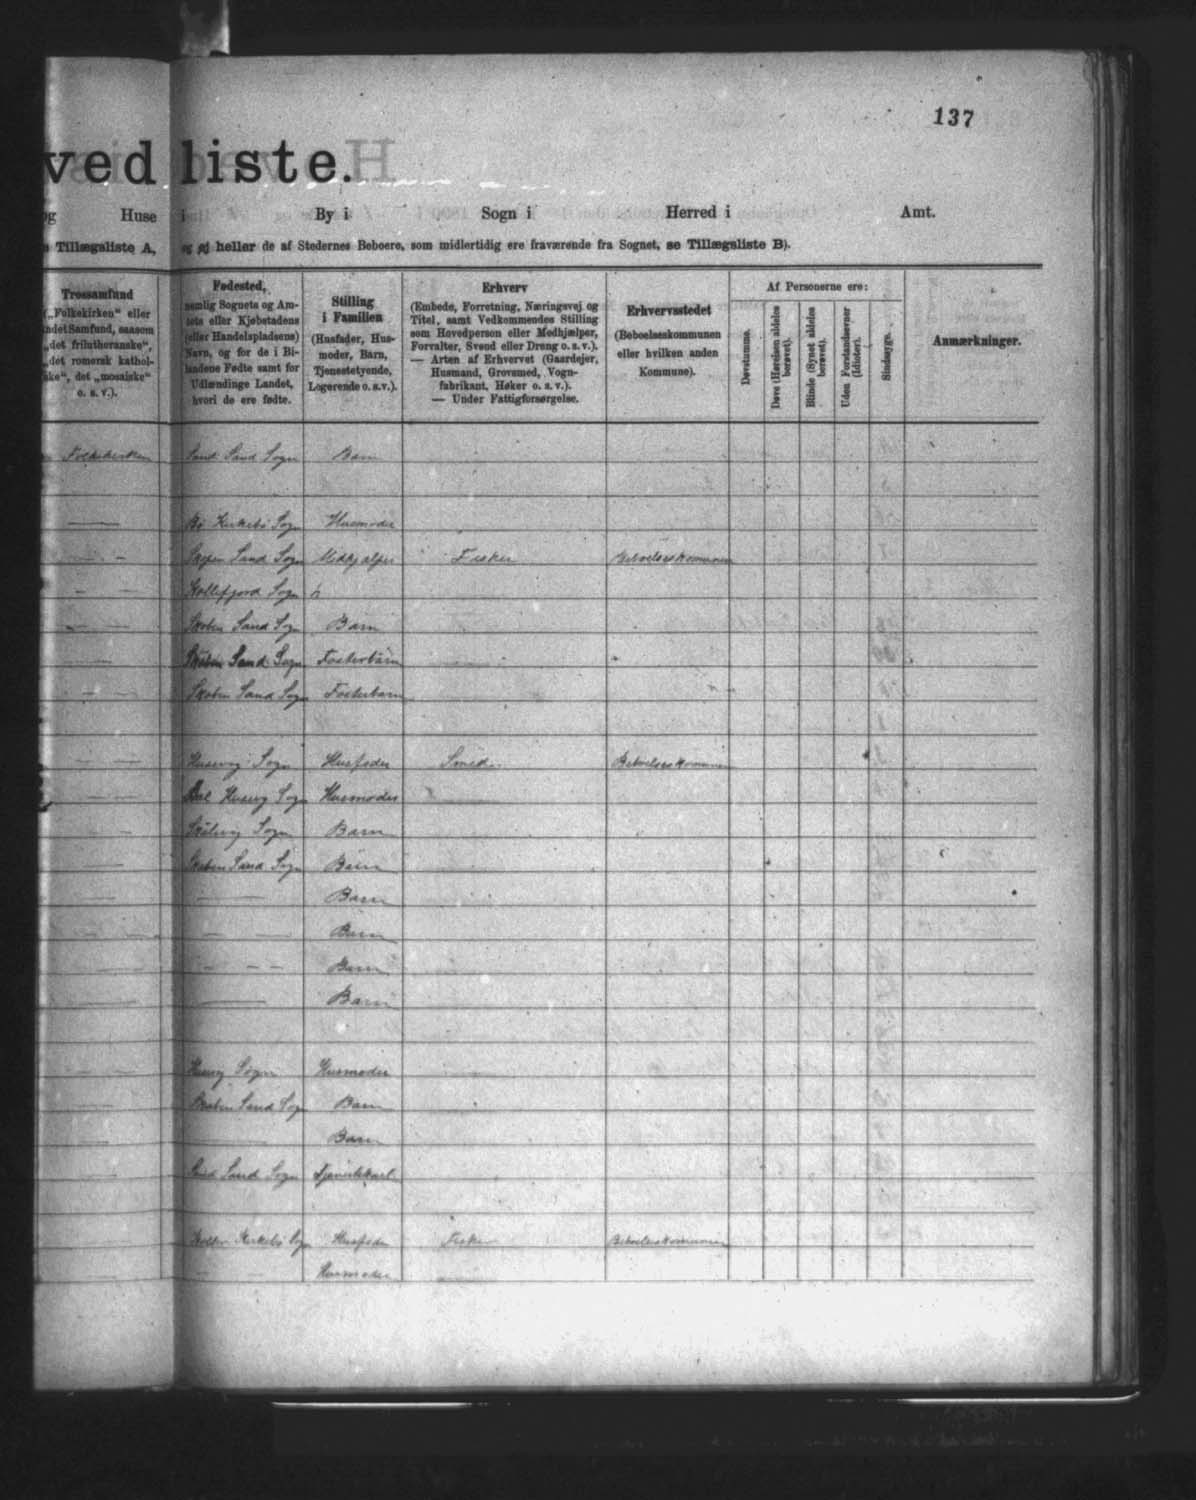 137
ved liste.
og Huse i By i Sogn i Herred i Amt.
Tillægsliste A, og ej heller de af Stedernes Beboere, som midlertidig ere fraværende fra Sognet, se Tillægsliste B).
Trossamfund
(„Folkekirken“ eller
andet Samfund, saasom
„det frilutheranske“,
„det romersk kathol-
ske“, det „mosaiske“
o. s. v.).
Fødested,
nemlig Sognets og Am-
tets eller Kjøbstadens
(eller Handelspladsens)
Navn, og for de i Bi-
landene Fødte samt for
Udlændinge Landet,
hvori de ere fødte.
Stilling
i Familien
(Husfader, Hus-
moder, Barn,
Tjenestetyende,
Logerende o. s. v.).
Erhverv
(Embede, Forretning, Næringsvej og
Titel, samt Vedkommendes Stilling
som Hovedperson eller Medhjælper,
Forvalter, Svend eller Dreng o. s. v.).
— Arten af Erhvervet (Gaardejer,
Husmand, Grovsmed, Vogn-
fabrikant, Høker o. s. v.).
— Under Fattigforsørgelse.
Erhvervsstedet
(Beboelseskommunen
eller hvilken anden
Kommune).
Af Personerne ere:
Døvstumme.
Døve (Hørelsen aldeles
berøvet).
Blinde (Synet aldeles
berøvet).
Uden Forstandsevner
(Idioter).
Sindssyge.
Anmærkninger.
Folkekirken Sand Sand Sogn Barn
— Bø Kirkebø Sogn Husmoder
— Skopen Sand Sogn Medhjælper Fisker Beboelseskommunen
— — Kollefjord Sogn
— — Skoben Sand Sogn Barn
— Skoben Sand Sogn Fosterbarn
— — Skoben Sand Sogn Fosterbarn
— — Husevig Sogn Husfader Smed Beboelseskommunen
— — Dal Husevig Sogn Husmoder —
— — Skålevig Sogn Barn
— Skoben Sand Sogn Barn
— — Barn
— — Barn
— — — Barn
— — Barn
— Husevig Sogn Husmoder
— Skoben Sand Sogn Barn
— — Barn
— — Sand Sand Sogn Tjenestekarl
— Kirkebø Sogn Husfader Fisker Beboelseskommunen
— — Husmoder —